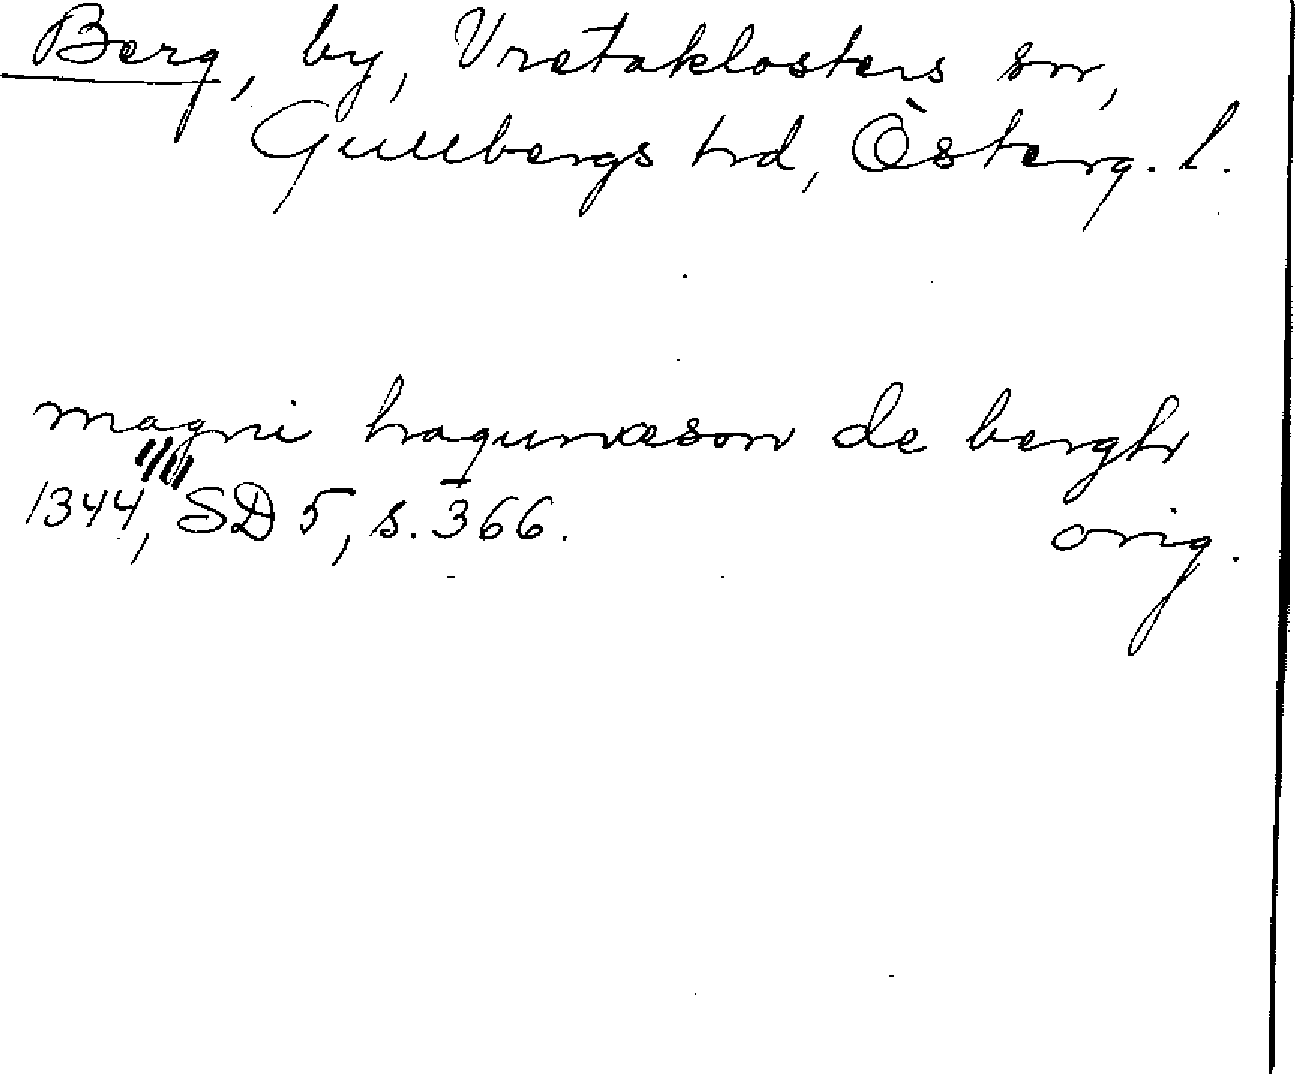 Berg, by, Vretaklosters sn,
Gullbergs hd, Österg. l.
magni haquinæson de bergh
1344, 11/11 SD 5, s. 366.
orig.